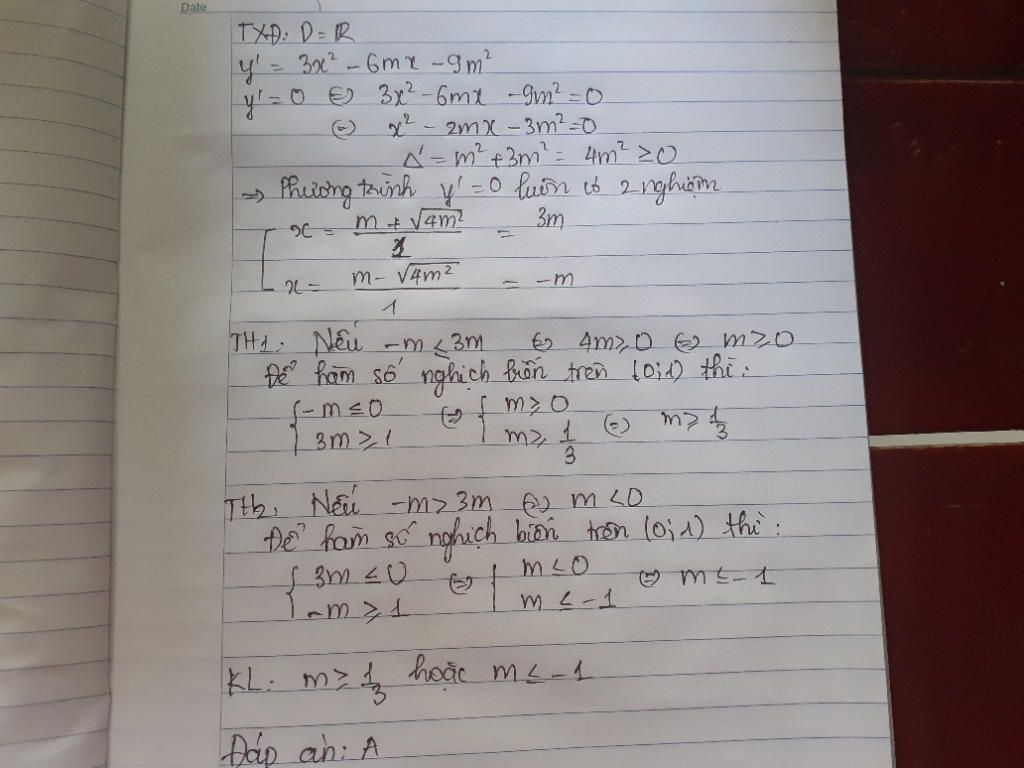 Date
TXĐ: D = ℝ
y' = 3x² - 6mx - 9m²
y' = 0 ⇔ 3x² - 6mx - 9m² = 0
⇔ x² - 2mx - 3m² = 0
Δ' = m² + 3m² = 4m² ≥ 0
⇒ Phương trình y' = 0 luôn có 2 nghiệm
[ x = (m + √4m²)/1 = 3m
x = (m - √4m²)/1 = -m
TH1: Nếu -m ≤ 3m ⇔ 4m ≥ 0 ⇔ m ≥ 0
Để hàm số nghịch biến trên (0;1) thì:
{ -m ≤ 0 ⇔ { m ≥ 0
3m ≥ 1 m ≥ 1/3 ⇔ m ≥ 1/3
TH2, Nếu -m > 3m ⇔ m < 0
Để hàm số nghịch biến trên (0;1) thì:
{ 3m ≤ 0 ⇔ { m ≤ 0
-m ≥ 1 m ≤ -1 ⇔ m ≤ -1
KL: m ≥ 1/3 hoặc m ≤ -1
Đáp án: A